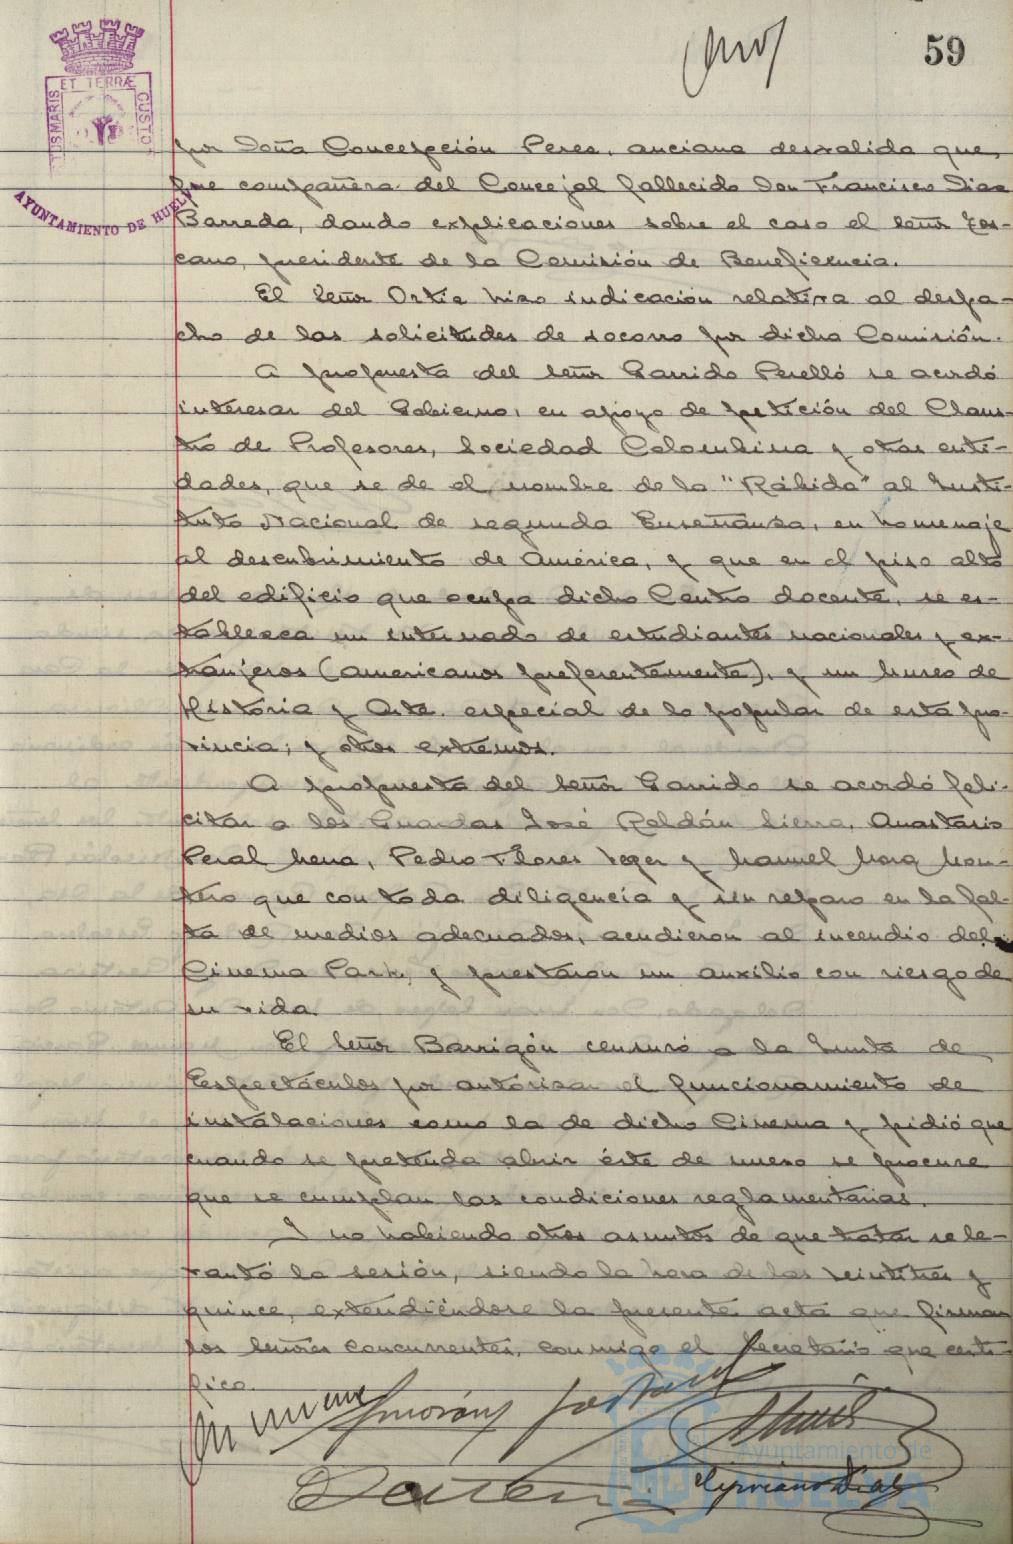 59
ET TERRÆ
CUSTO
TUSMARIS
AYUNTAMIENTO DE HUELVA
por Doña Concepción Peres, anciana desvalida que
fue compañera del Concejal fallecido Don Francisco Diaz
Barreda, dando explicaciones sobre el caso el Señor Tos-
cano, presidente de la Comisión de Beneficencia.
El Señor Ortiz hizo indicación relativa al despa-
cho de las solicitudes de socorro por dicha Comisión.
A propuesta del Señor Garrido Perelló se acordó
interesar del Gobierno, en apoyo de petición del Claus-
tro de Profesores, Sociedad Colombina y otras enti-
dades, que se de el nombre de la "Rábida" al Insti-
tuto Nacional de segunda Enseñanza, en homenaje
al descubrimiento de América, y que en el piso alto
del edificio que ocupa dicho Centro docente, se es-
tablezca un internado de estudiantes nacionales y ex-
tranjeros (americanos preferentemente), y un Museo de
Historia y Arte, especial de lo popular de esta pro-
vincia; y otros extremos.
A propuesta del Señor Garrido se acordó feli-
citar a los Guardas José Roldán Sierra, Anastasio
Peral Mena, Pedro Flores Veger y Manuel Mora Mon-
tero que con toda diligencia y sin reparo en la fal-
ta de medios adecuados, acudieron al incendio del
Cinema Park, y prestaron un auxilio con riesgo de
su vida.
El Señor Barrigón censuró a la Junta de
Espectáculos por autorizar el funcionamiento de
instalaciones como la de dicho Cinema y pidió que
cuando se pretenda abrir éste de nuevo se procure
que se cumplan las condiciones reglamentarias.
Y no habiendo otros asuntos de que tratar se le-
vantó la sesión, siendo la hora de las veintitres y
quince, extendiéndose la presente acta que firman
los Señores concurrentes, conmigo el Secretario que certi-
fico.
Cipriano Diaz
Ayuntamiento de
HUELVA